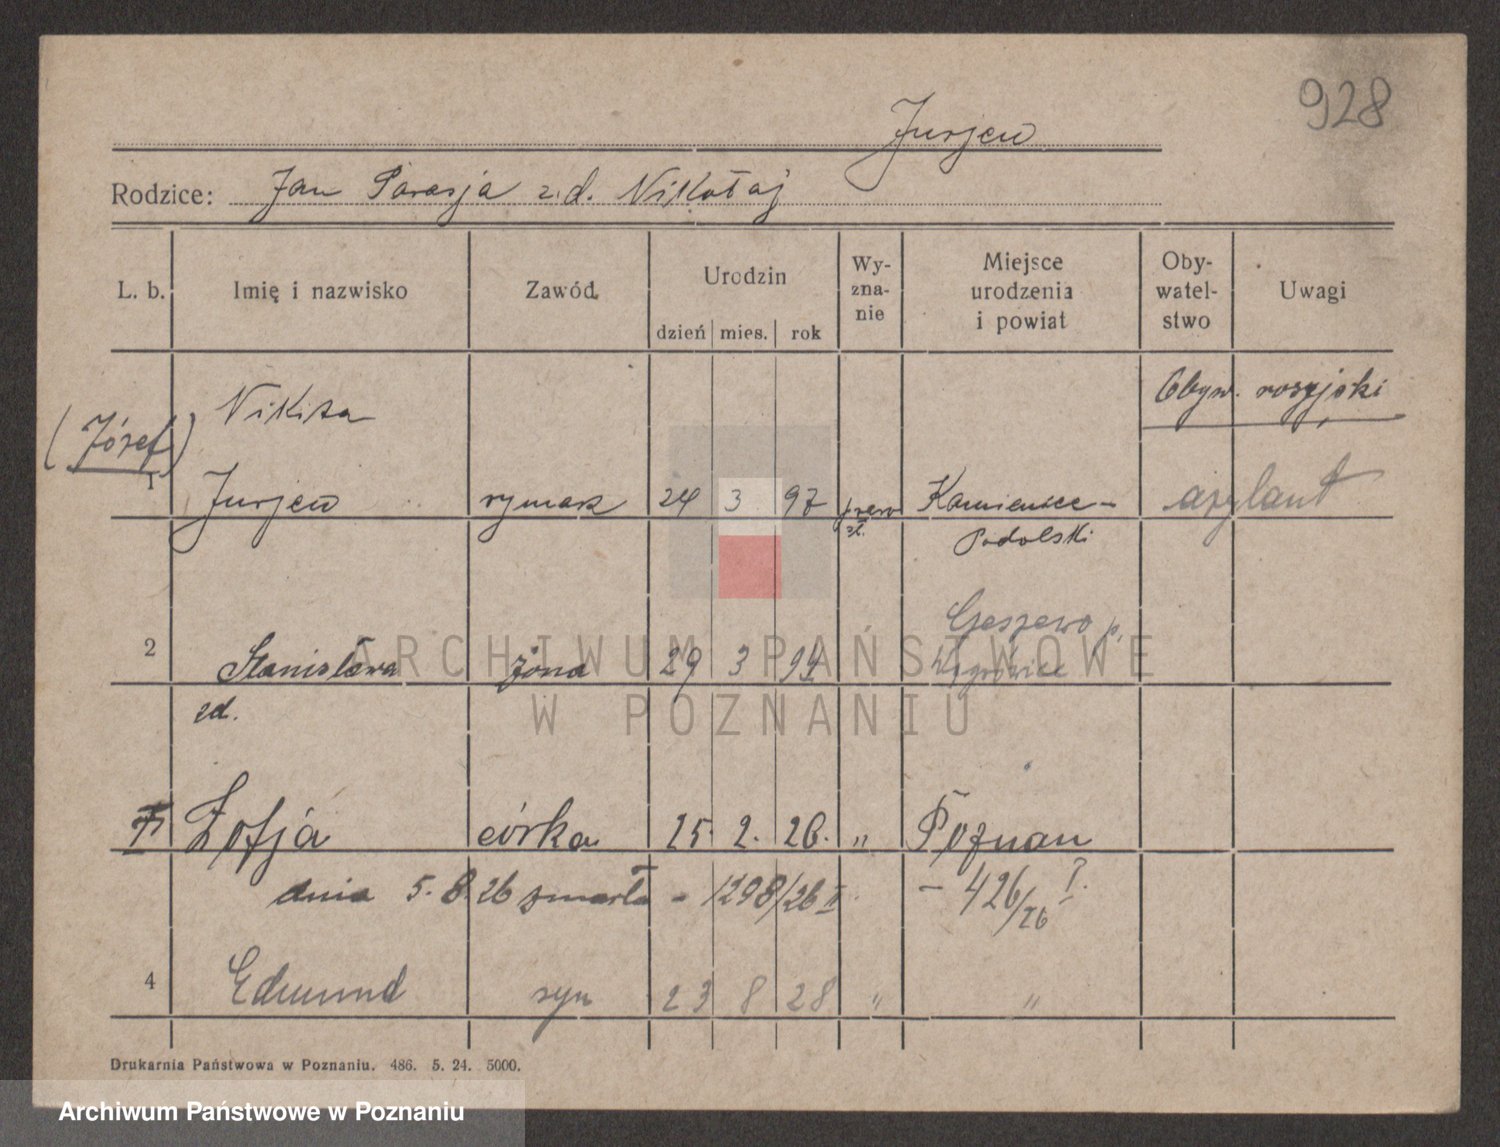 928
Jurjew
Rodzice: Jan Parasja z.d. Nikołaj
L. b. Imię i nazwisko Zawód Urodzin dzień mies. rok Wy-zna-nie Miejsce urodzenia i powiat Oby-watel-stwo Uwagi
Obyw. rosyjski
Nikita
(Józef)
1 Jurjew rymarz 24 3 97 prawosł. Kamieniec-
Podolski
azylant
2 Stanisława żona 29 3 99
zd.
Zofja córka 25. 2. 26. " Poznań
dnia 5.8.26 zmarła - 1298/26 II - 426/26 I.
4 Edmund syn 23 8 28 " "
Drukarnia Państwowa w Poznaniu. 486. 5. 24. 5000.
ARCHIWUM PAŃSTWOWE
W POZNANIU
Archiwum Państwowe w Poznaniu